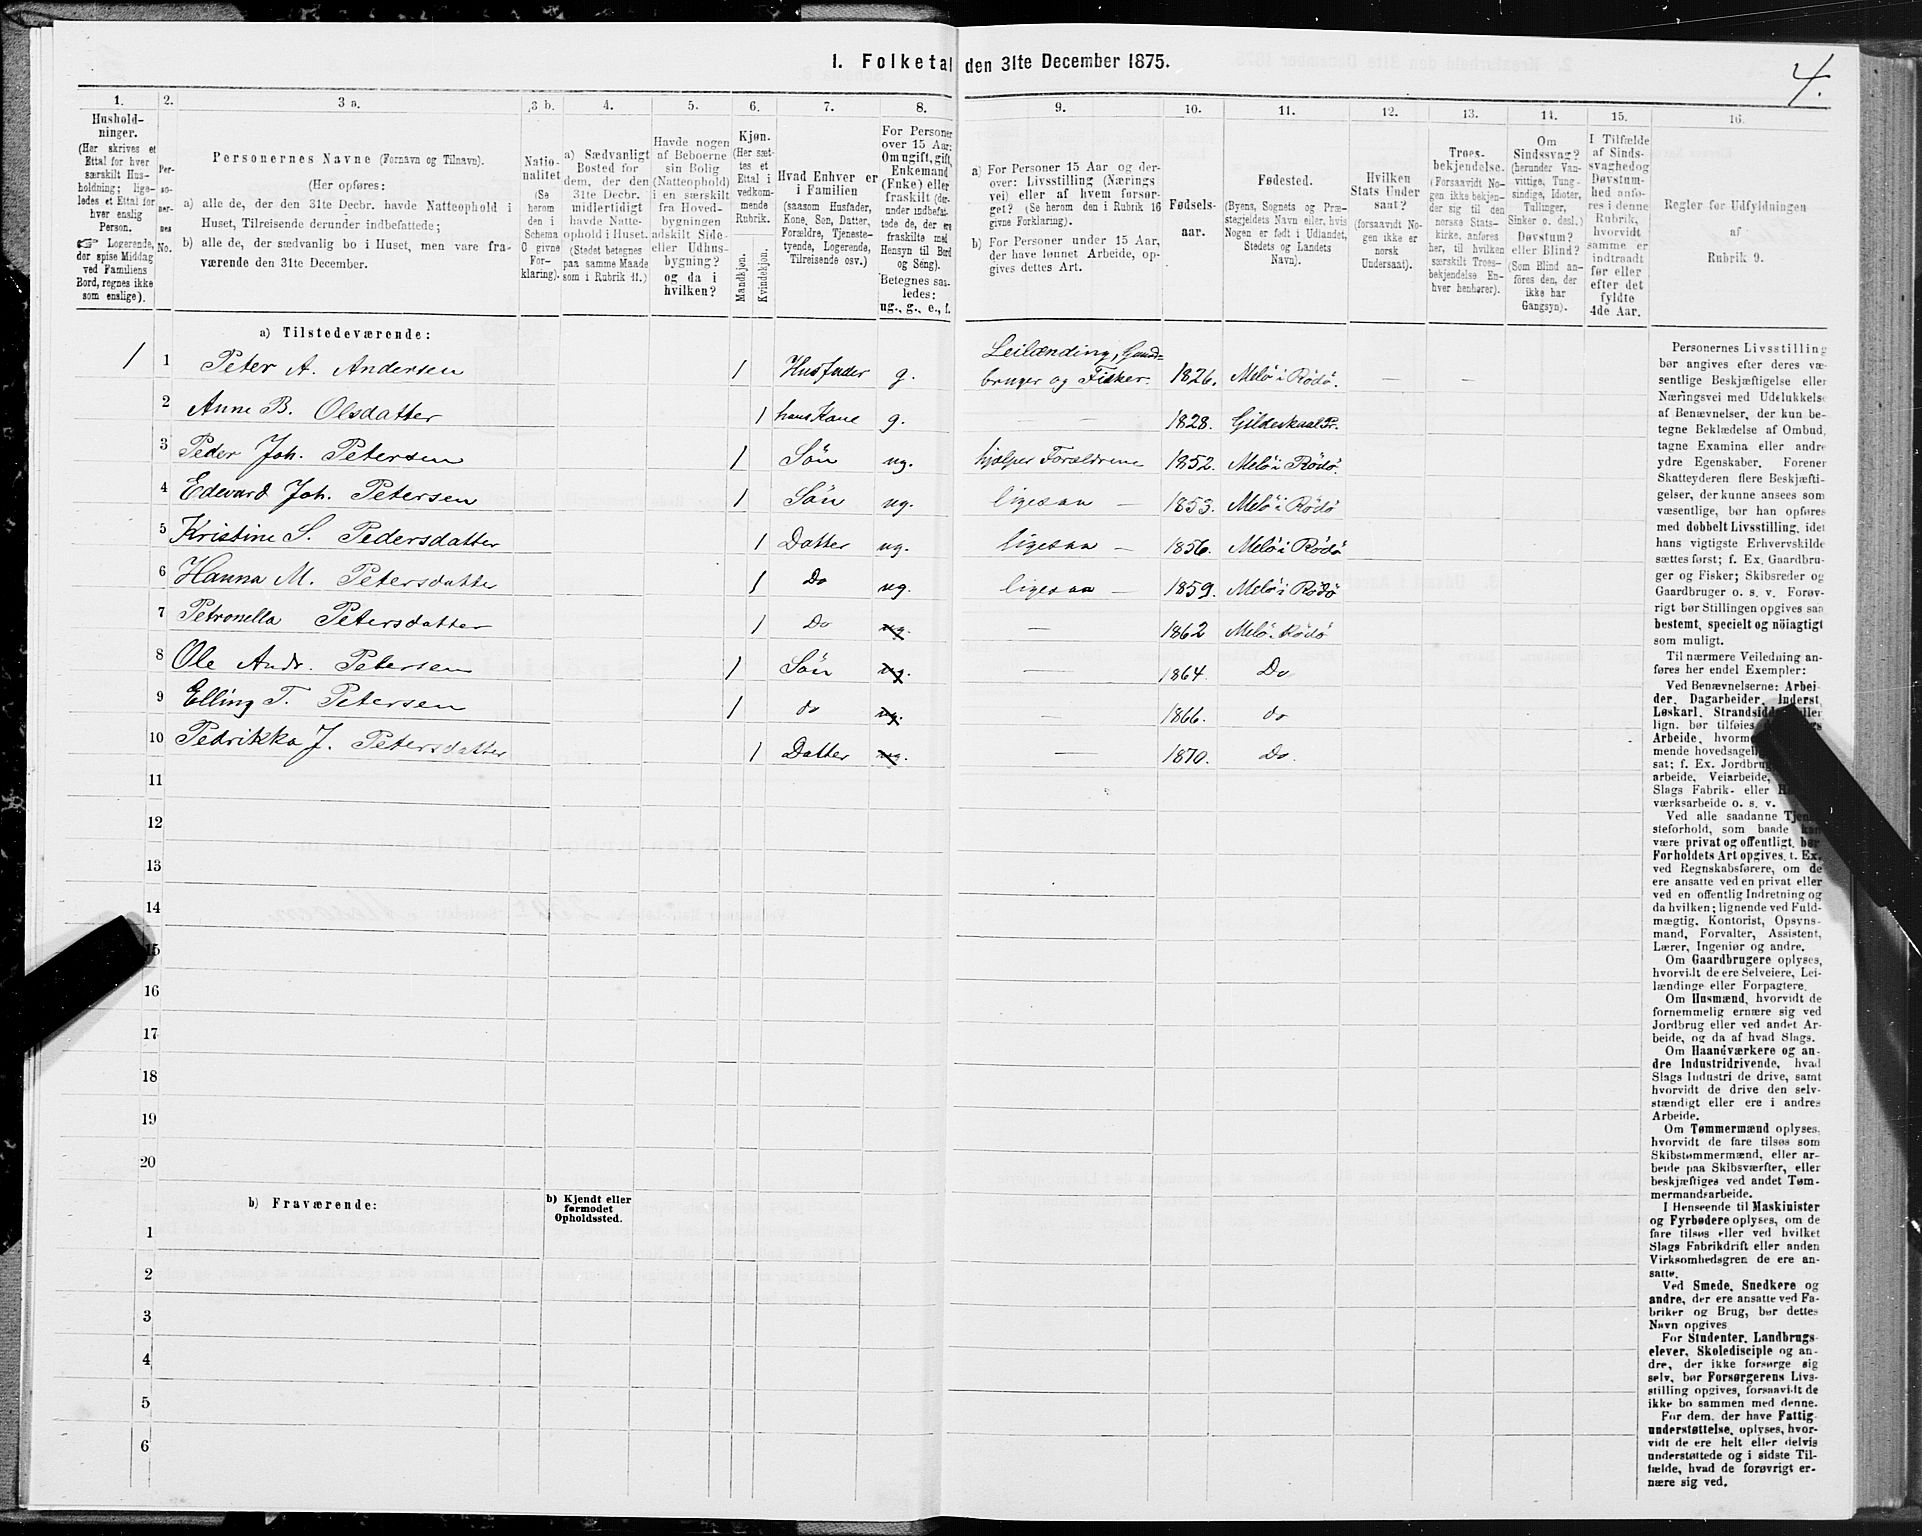 1. Folketal den 31te December 1875.
4.
1.
2.
3 a.
3 b.
4.
5.
6.
7.
8.
9.
10.
11.
12.
13.
14.
15.
16.
Hushold-
ninger.
(Her skrives et
Ettal for hver
særskilt Hus-
holdning; lige-
ledes et Ettal for
hver enslig
Person.
☞ Logerende,
der spise Middag
ved Familiens
Bord, regnes ikke
som enslige).
Per-
so-
ner-
nes
No.
Personernes Navne (Fornavn og Tilnavn).
(Her opføres:
a) alle de, der den 31te Decbr. havde Natteophold i
Huset, Tilreisende derunder indbefattede;
b) alle de, der sædvanlig bo i Huset, men vare fra-
værende den 31te December.
Natio-
nalitet
(Se
herom
den i
Schema
O givne
For-
klaring).
a) Sædvanligt
Bosted for
dem, der den
31te Decbr.
midlertidigt
havde Natte-
ophold i Huset.
(Stedet betegnes
paa samme Maade
som i Rubrik 11.)
Havde nogen
af Beboerne
sin Bolig
(Natteophold)
i en særskilt
fra Hoved-
bygningen
adskilt Side-
eller Udhus-
bygning?
og da i
hvilken?
Kjøn.
(Her sæt-
tes et
Ettal i
vedkom-
mende
Rubrik.
Mandkjøn.
Kvindekjøn.
Hvad Enhver er
i Familien
(saasom Husfader,
Kone, Søn, Datter,
Forældre, Tjeneste-
tyende, Logerende,
Tilreisende osv.)
For Personer
over 15 Aar:
Om ugift, gift,
Enkemand
(Enke) eller
fraskilt (der-
under indbefat-
tede de, der ere
fraskilte med
Hensyn til Bord
og Seng).
Betegnes saa-
ledes:
ug., g., e., f.
a) For Personer 15 Aar og der-
over: Livsstilling (Nærings
vei) eller af hvem forsør-
get? (Se herom den i Rubrik 16
givne Forklaring).
b) For Personer under 15 Aar,
der have lønnet Arbeide, op-
gives dettes Art.
Fødsels-
aar.
Fødested.
(Byens, Sognets og Præ-
stegjeldets Navn eller, hvis
Nogen er født i Udlandet,
Stedets og Landets
Navn).
Hvilken
Stats Under
saat?
(forsaavidt No-
gen ikke er
norsk
Undersaat).
Troes-
bekjendelse.
(Forsaavidt No-
gen ikke bekjen-
der sig til den
norske Stats-
kirke, anføres
her, til hvilken
særskilt Troes-
bekjendelse En-
hver henhører).
Om
Sindssvag?
(herunder Van-
vittige, Tung-
sindige, Idioter,
Tullinger,
Sinker o. desl.)
Døvstum?
eller Blind?
(Som Blind an-
føres den, der
ikke har
Gangsyn).
I Tilfælde
af Sinds-
svaghed og
Døvstum-
hed anfø-
res i denne
Rubrik,
hvorvidt
samme er
indtraadt
før eller
efter det
fyldte
4de Aar.
Regler for Udfyldningen
af
Rubrik 9.
a) Tilstedeværende:
1 1 Peter A. Andersen 1 Husfader g. Leilænding, Gaard-
bruger og Fisker. 1826. Melö i Rödö. — —
2 Anne B. Olsdatter 1 hans Kone g. — 1828. Gildeskaal Pr.
3 Peder Joh. Petersen 1 Sön ug. hjælper Forældrene 1852. Melö i Rödö.
4 Edevard Joh. Petersen 1 Sön ug. ligesaa — 1853. Melö i Rödö
5 Kristine S. Pedersdatter 1 Datter ug. ligesaa — 1856. Melö i Rödö
6 Hanna M. Petersdatter 1 Do ug. ligesaa — 1859. Melö i Rödö
7 Petronella Petersdatter 1 Do ug. — 1862 Melö. Rödö
8 Ole Andr. Petersen 1 Sön ug. — 1864. Do
9 Elling T. Petersen 1 do ug. — 1866. do
10 Pedrikka J. Petersdatter 1 Datter ug. — 1870. Do.
11
12
13
14
15
16
17
18
19
20
b) Fraværende:
b) Kjendt eller
formodet
Opholdssted.
1
2
3
4
5
6
Personernes Livsstilling
bør angives efter deres væ-
sentlige Beskjæftigelse eller
Næringsvei med Udelukkelse
af Benævnelser, der kun be-
tegne Beklædelse af Ombud,
tagne Examina eller andre
ydre Egenskaber. Forener
Skatteyderen flere Beskjæfti-
gelser, der kunne ansees som
væsentlige, bør han opføres
med dobbelt Livsstilling, idet
hans vigtigste Erhvervskilde
sættes først; f. Ex. Gaardbru-
ger og Fisker; Skibsreder og
Gaardbruger o. s. v. Forøv-
rigt bør Stillingen opgives saa
bestemt, specielt og nöiagtigt
som muligt.
Til nærmere Veiledning an-
føres her endel Exempler:
Ved Benævnelserne: Arbei-
der, Dagarbeider, Inderst,
Løskarl, Strandsidder eller
lign. bør tilføies
Arbeide, hvorm
mende hovedsagelig
sat; f. Ex. Jordbrug
arbeide, Veiarbeide,
Slags Fabrik- eller
værksarbeide o. s. v.
Ved alle saadanne Tjene-
steforhold, som baade kan
være privat og offentligt, bør
Forholdets Art opgives, t. Ex.
ved Regnskabsførere, om de
ere ansatte ved en privat eller
ved en offentlig Indretning og
da hvilken; lignende ved Fuld-
mægtig, Kontorist, Opsyns-
mand, Forvalter, Assistent,
Lærer, Ingeniør og andre.
Om Gaardbrugere oplyses,
hvorvidt de ere Selveiere, Lei-
lændinge eller Forpagtere.
Om Husmænd, hvorvidt de
fornemmelig ernære sig ved
Jordbrug eller ved andet Ar-
beide, og da af hvad Slags.
Om Haandværkere og an-
dre Industridrivende, hvad
Slags Industri de drive, samt
hvorvidt de drive den selv-
stændigt eller ere i andres
Arbeide.
Om Tømmermænd oplyses,
hvorvidt de fare tilsøs som
Skibstømmermænd, eller ar-
beide paa Skibsværfter, eller
beskjæftiges ved andet Tøm-
mermandsarbeide.
I Henseende til Maskinister
og Fyrbødere oplyses, om de
fare tilsøs eller ved hvilket
Slags Fabrikdrift eller anden
Virksomhedsgren de ere an-
satte.
Ved Smede, Snedkere og
andre, der ere ansatte ved Fa-
briker og Brug, bør dettes
Navn opgives
For Studenter, Landbrugs-
elever, Skoledisciple og an-
dre, der ikke forsørge sig
selv, bør Forsørgerens Livs-
stilling opgives, forsaavidt de
ikke bo sammen med denne.
For dem, der have Fattig-
understøttelse, oplyses, hvor-
vidt de ere helt eller delvis
understøttede og i sidste Til-
fælde, hvad de forøvrigt er-
nære sig ved.